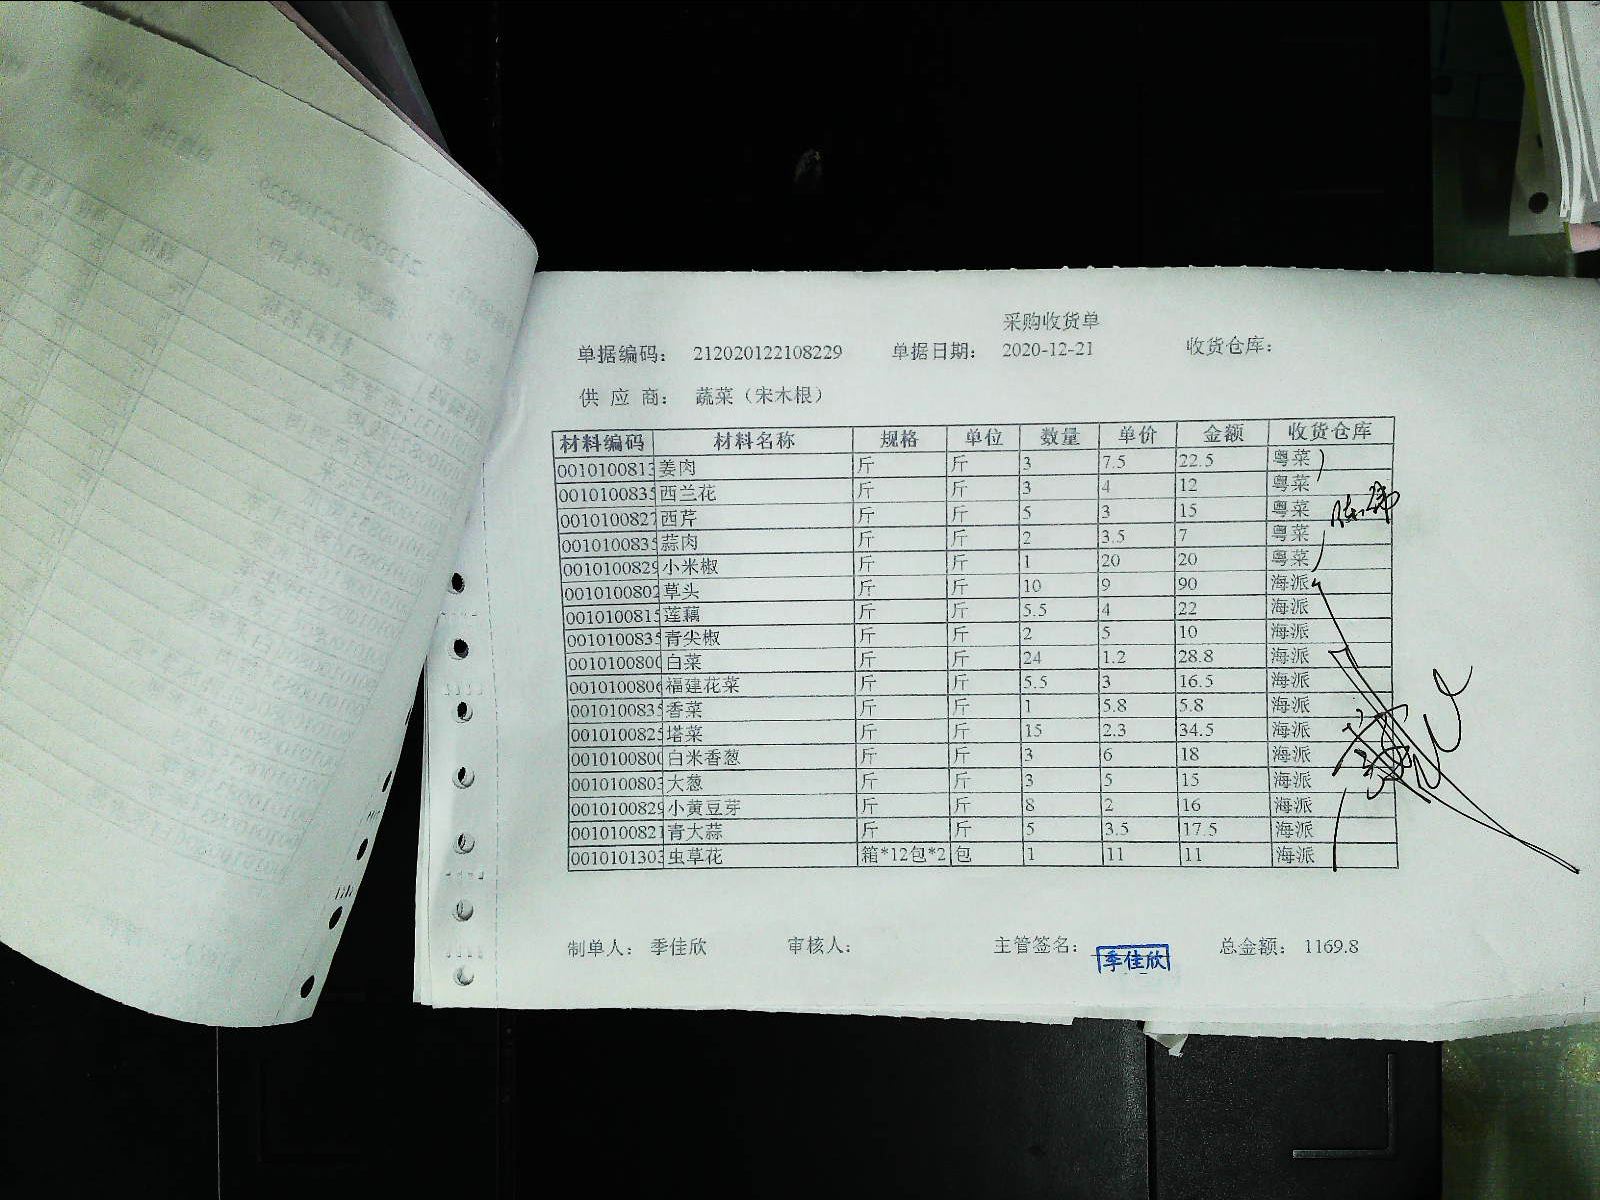 采购收货单
单据编码： 212020122108229 单据日期： 2020-12-21 收货仓库：
供 应 商： 蔬菜（宋木根）
材料编码 材料名称 规格 单位 数量 单价 金额 收货仓库
001010081 姜肉 斤 斤 3 7.5 22.5 粤菜
001010083 西兰花 斤 斤 3 4 12 粤菜
001010082 西芹 斤 斤 5 3 15 粤菜
001010083 蒜肉 斤 斤 2 3.5 7 粤菜
001010082 小米椒 斤 斤 1 20 20 粤菜
001010080 草头 斤 斤 10 9 90 海派
001010081 莲藕 斤 斤 5.5 4 22 海派
001010083 青尖椒 斤 斤 2 5 10 海派
001010080 白菜 斤 斤 24 1.2 28.8 海派
001010080 福建花菜 斤 斤 5.5 3 16.5 海派
001010083 香菜 斤 斤 1 5.8 5.8 海派
001010082 塔菜 斤 斤 15 2.3 34.5 海派
001010080 白米香葱 斤 斤 3 6 18 海派
001010080 大葱 斤 斤 3 5 15 海派
001010082 小黄豆芽 斤 斤 8 2 16 海派
001010082 青大蒜 斤 斤 5 3.5 17.5 海派
001010130 虫草花 箱*12包*2 包 1 11 11 海派
制单人： 季佳欣 审核人： 主管签名： 季佳欣 总金额： 1169.8